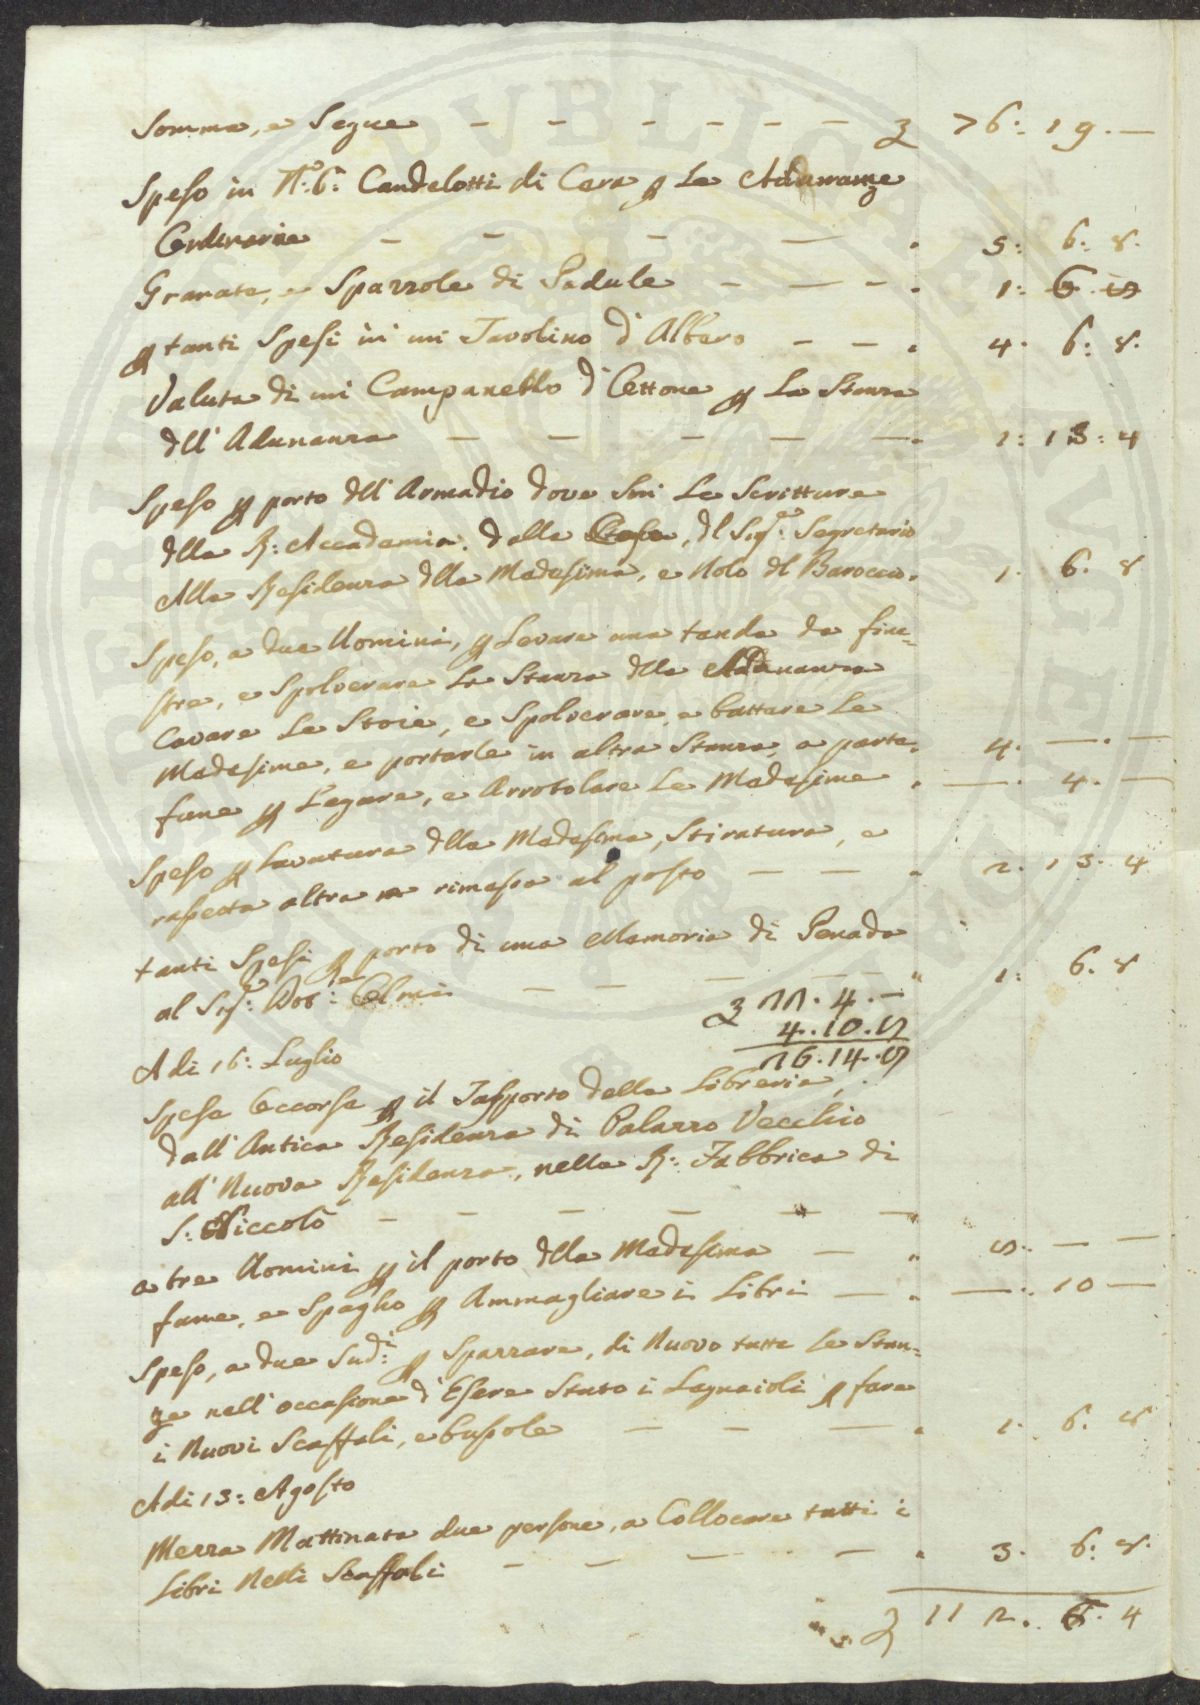 Somma, e Segue — — — — — — — £ 76: 19. —
Speso in N.º 6: Candelotti di Cera p La Adunanze
Ordinarie — — — — 5: 6: 8.
Granate, e Spazzole di Padule — — — 1: 6.
p tanti Spesi in un Tavolino d'Albero — — 4. 6: 8.
Valuta di un Campanello d'Ottone p La Stanza
dll' Adunanza — — — — — 1: 13: 4
Speso p porto dll' Armadio dove Sni Le Scritture
dlla R: Accademia. dalla Casa, dl Sig.e: Segretario
Alla Residenza dlla Medesima, e Nolo dl Baroccio. 1. 6. 8
Speso, a due Uomini, p Levare una tenda da fine-
stre, e Spolverare La Stanza dlla Adunanza
Cavare Le Stoie, e Spolverare, e battere Le
Medesime, e portarle in altra Stanza, a parte. 4. —. —
fune p Legare, e Arrotolare Le Medesime — 4. —
Speso p Lavatura dlla Medesima, Stiratura, e
rasetta altra rimessa al posto — — 2. 13. 4
tanti Spesi p porto di una Memoria di Penada
al Sig.e Dot:re — — — — — 1: 6. 8
£ 11. 4. —
4. 10. 5
16. 14. 5
A di 16: Luglio
Spesa Occorsa p il Tasporto della Libreria,
dall' Antica Residenza di Palazzo Vecchio
all' Nuova Residenza, nella R: Fabbrica di
S: Niccolò — — — — — —
a tre Uomini p il porto dlla Medesima — 5. — —
fune, e Spagho p Ammagliare i Libri — —. 10 —
Speso, a due Sud.i: p Spazzare, di Nuovo tutte le Stan-
ze nell' occasione d'Esere Stato i Legnaioli p fare
i Nuovi Scaffali, e busole — — — 1. 6. 8
A di 13: Agosto
Mezza Mattinata due persone, a Collocare tutti i
Libri Nelli Scaffali — — — — 3. 6: 8.
£ 112. 6. 4